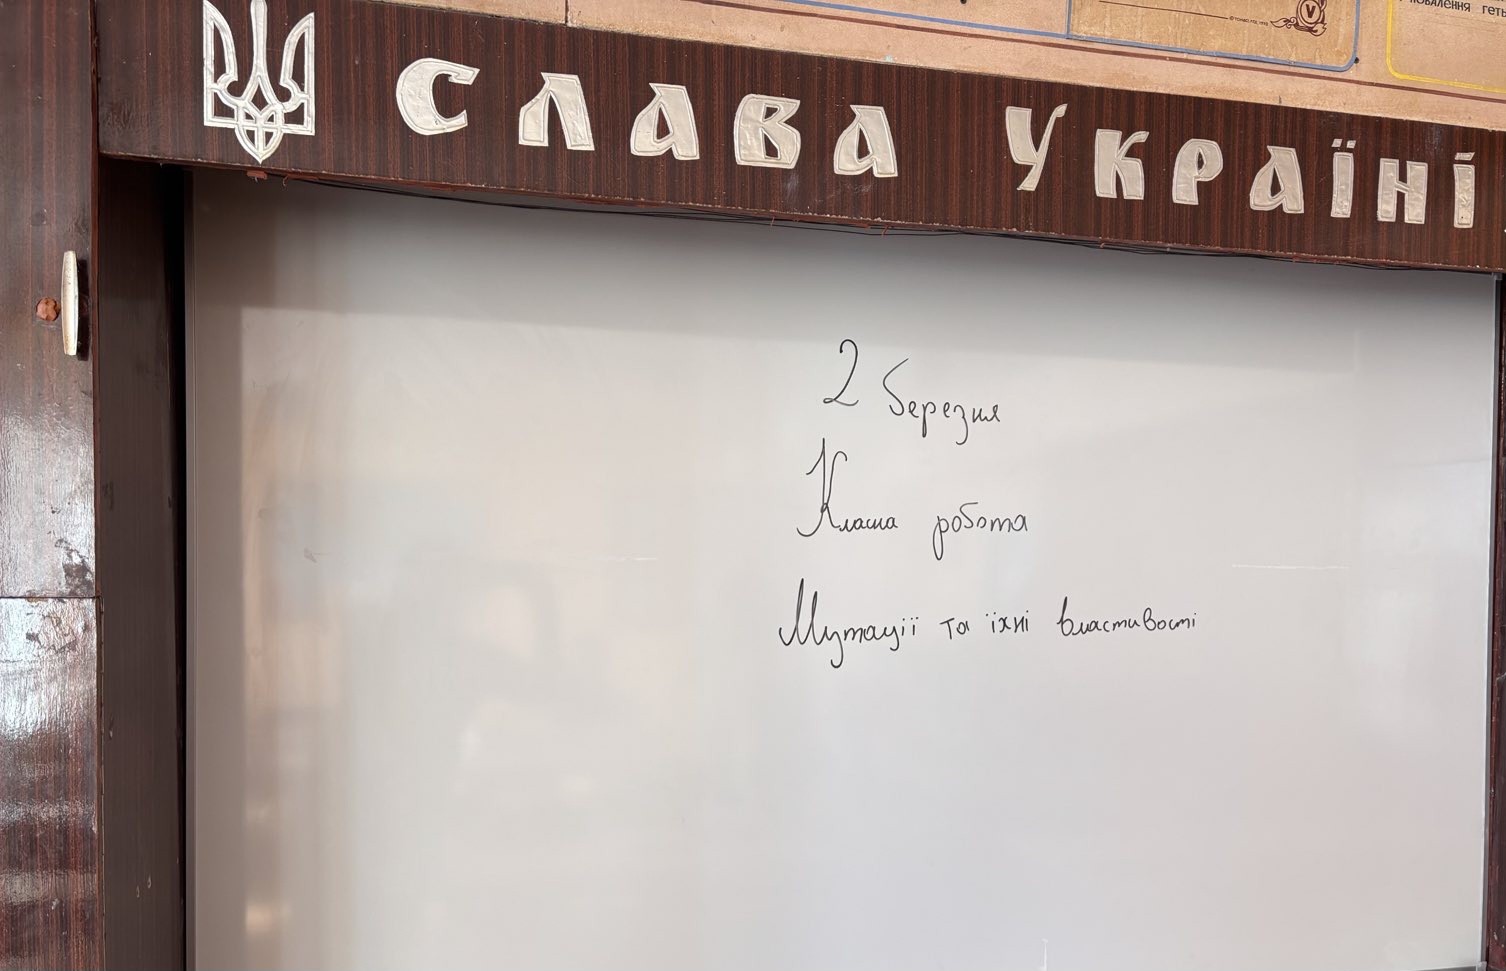 СЛАВА УКРАЇНІ
2 березня
Класна робота
Мутації та їхні властивості